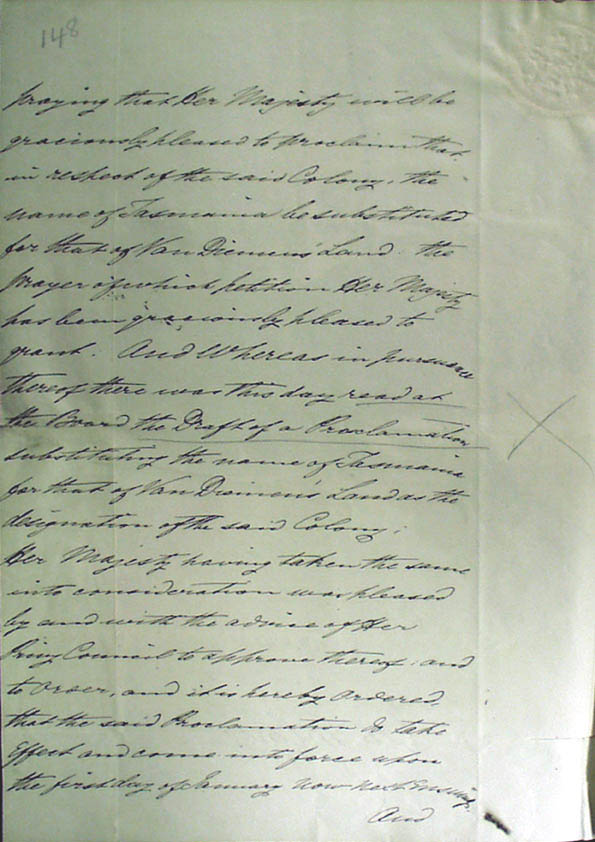 148
praying that Her Majesty will be
graciously pleased to proclaim that
in respect of the said Colony, the
name of Tasmania be substituted
for that of Van Diemen's Land. the
prayer of which petition Her Majesty
has been graciously pleased to
grant. And Whereas in pursuance
thereof there was this day read at
the Board the Draft of a Proclamation
substituting the name of Tasmania
for that of Van Diemen's Land as the
designation of the said Colony;
Her Majesty having taken the same
into consideration was pleased
by and with the advice of Her
Privy Council to approve thereof, and
to order, and it is hereby ordered,
that the said Proclamation do take
Effect and come into force upon
the first day of January now next ensuing.
And